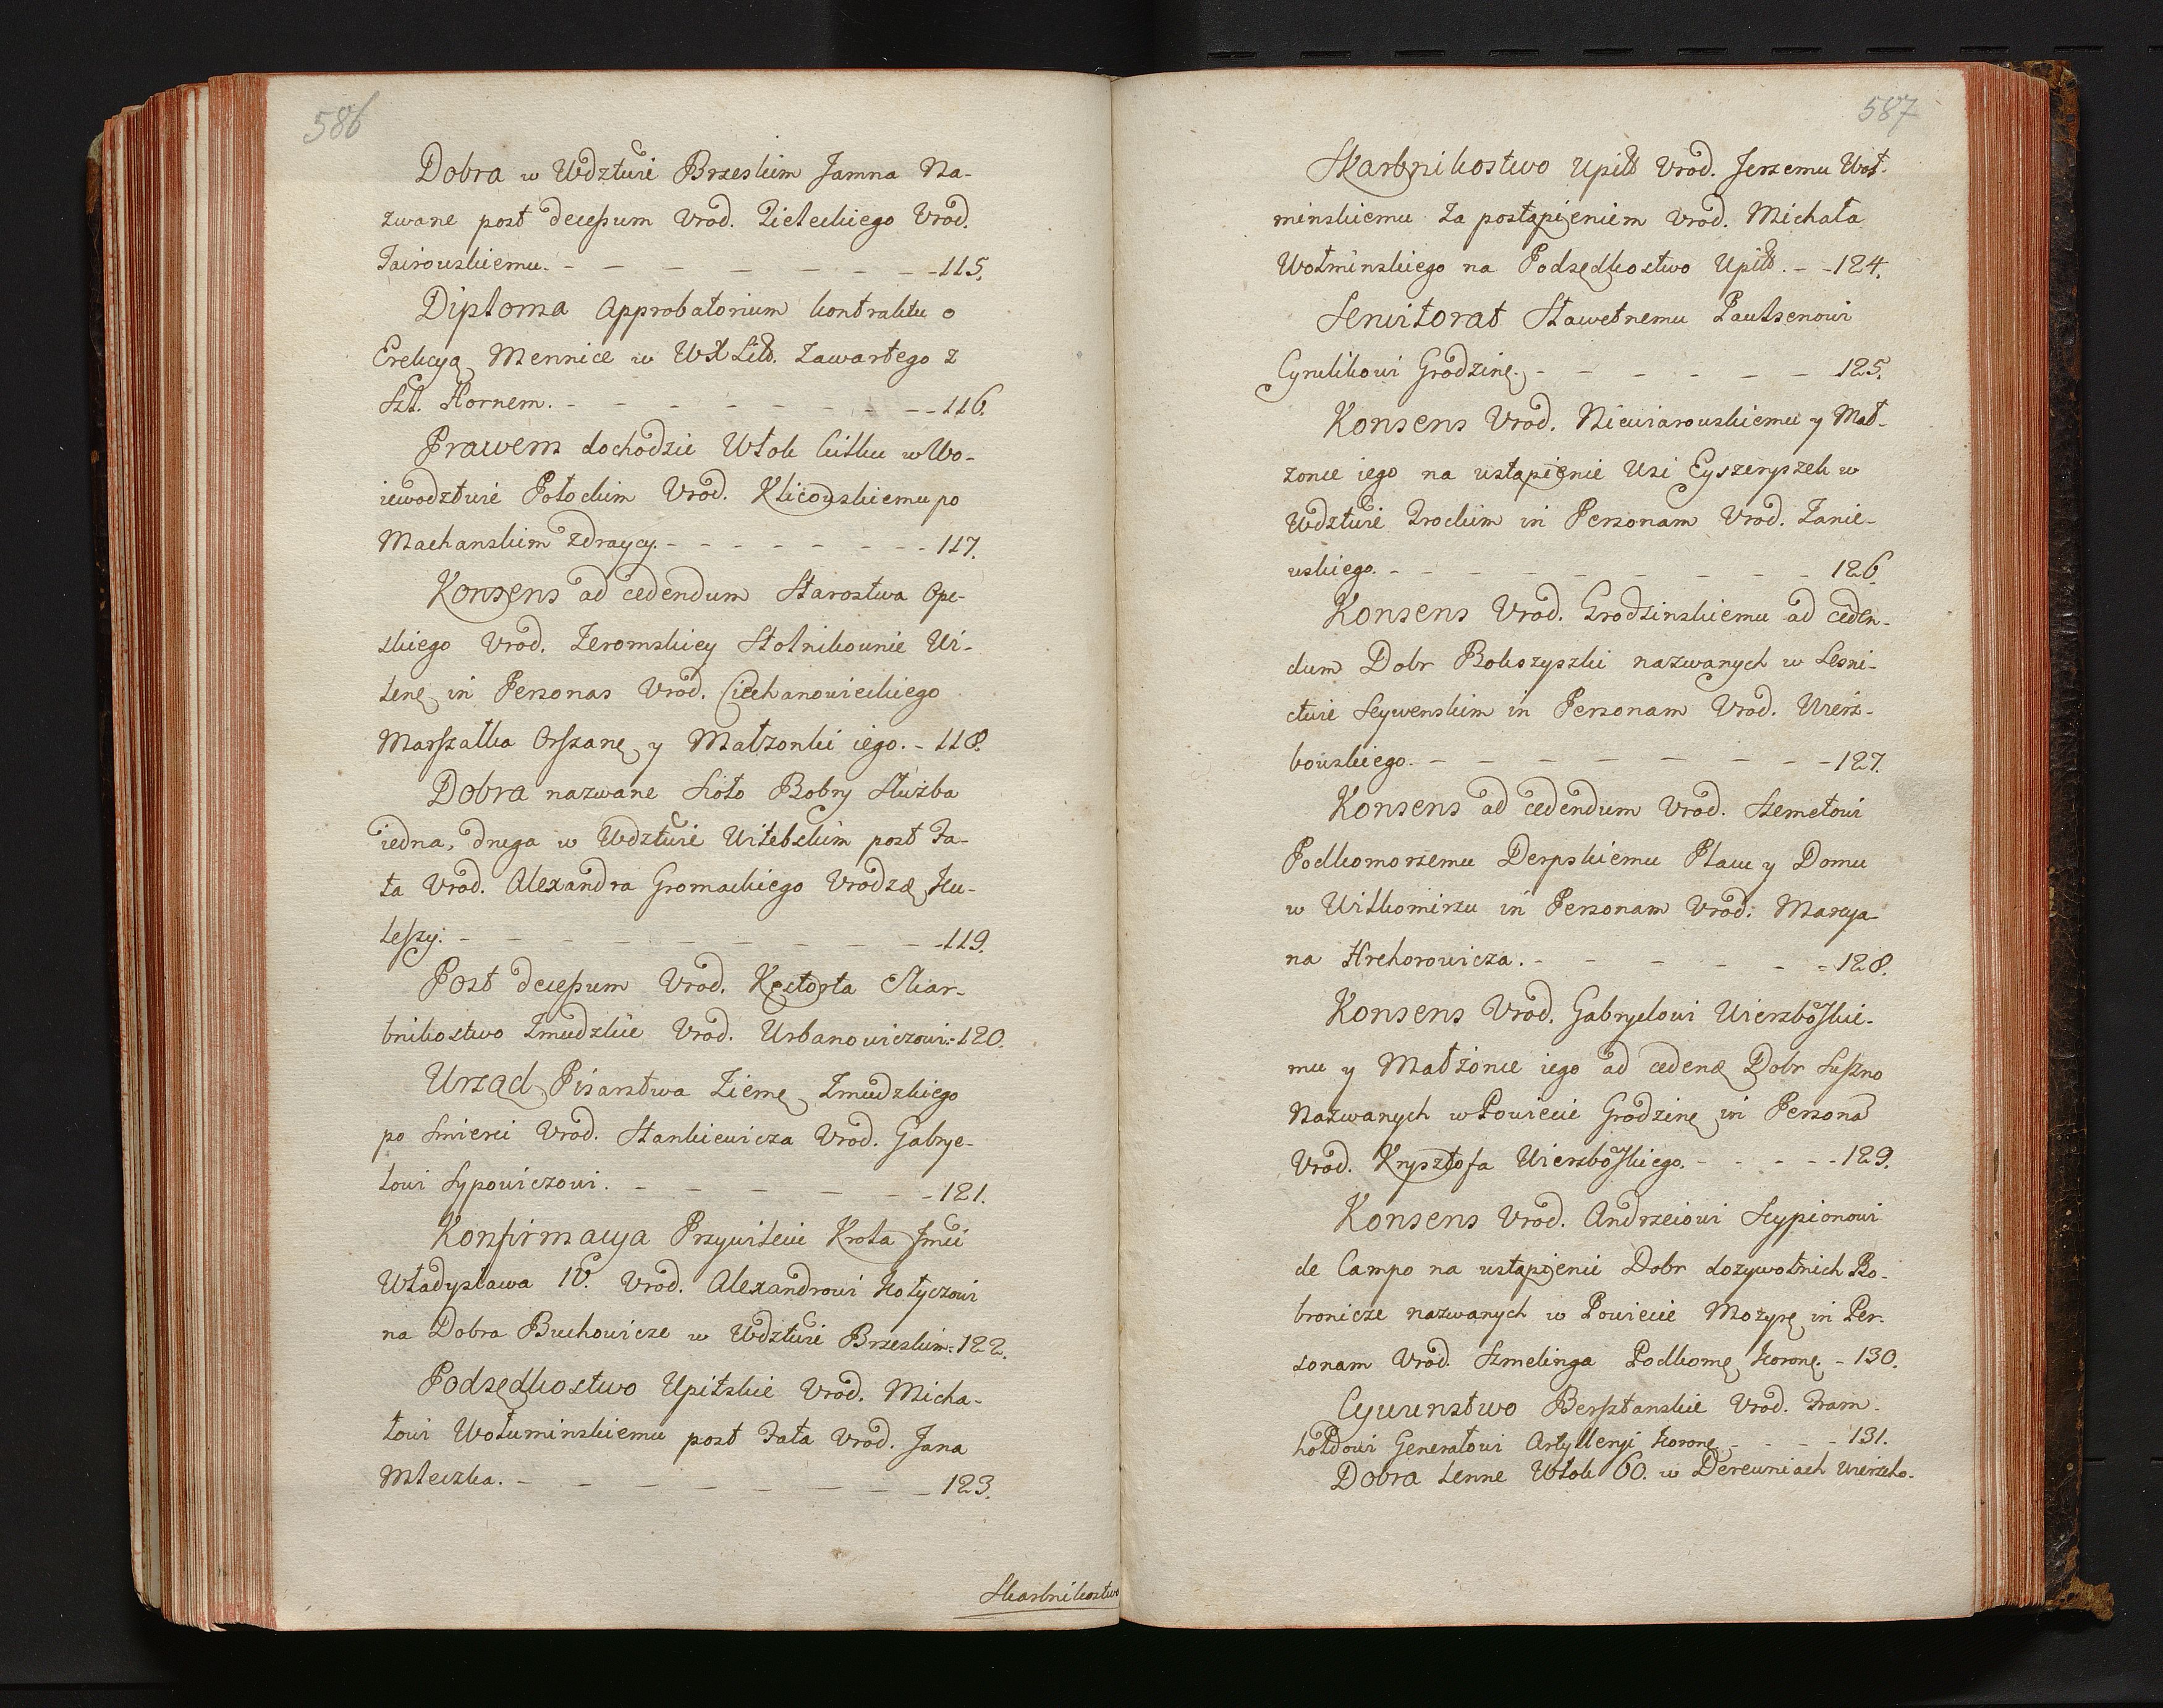 586
Dobra w Wdztwie Brzeskim Jamna Na-
zwane post decessum Urod. Zieleckiego Urod.
Tairowskiemu. - - - - - - - - 115.
Diploma Approbatorium kontraktu o
Erekcyą Mennice w WXLitt. zawartego z
Szl. Hornem. - - - - - - - - 116.
Prawem dochodzić Włok kilku w Wo-
iewodztwie Połockim Urod. Klicowskiemu po
Machanskim zdraycy. - - - - - - - 117.
Konsens ad cedendum Starostwa Ope-
skiego Urod. Zeromskiey Stolnikownie Wi-
leng in Personas Urod. Ciechanowieckiego
Marszałka Orszang y Małzonki iego. - 118.
Dobra nazwane Sioło Bobry Służba
iedna, druga w Wdztwie Witebskim post Fa-
ta Urod. Alexandra Gromackiego Urodzę Ku-
leszy: - - - - - - - - - 119.
Post decessum Urod. Kęstorta Skar-
bnikostwo Zmudzkie Urod. Urbanowiczowi. - 120.
Urząd Pisarstwa Ziemg Zmudzkiego
po smierci Urod. Stankiewicza Urod. Gabrye-
lowi Sypowiczowi. - - - - - - 121.
Konfirmacya Przywileiu Krola Jmći
Władysława IV. Urod. Alexandrowi Kotyczowi
na Dobra Buchowicze w Wdztwie Brzeskim. - 122.
Podsędkostwo Upitskie Urod. Micha-
łowi Wołuminskiemu post Fata Urod. Jana
Mleczka. - - - - - - - - 123.
Skarbnikostwo
587
Skarbnikostwo Upitt Urod. Jerzemu Woł-
minskiemu za postąpieniem Urod. Michała
Wołminskiego na Podsędkostwo Upitt. - - 124.
Serwitorat Sławetnemu Paulsenowi
Cyrulikowi Grodzing. - - - - - - 125.
Konsens Urod. Niewiarowskiemu y Mał-
zonce iego na ustąpienie Wsi Eyszeryszek w
Wdztwie Trockim in Personam Urod. Zanie-
wskiego. - - - - - - - - - 126.
Konsens Urod. Grodzinskiemu ad ceden-
dum Dobr Bokszyszki nazwanych w Lesni-
ctwie Seywenskim in Personam Urod. Wierz-
bowskiego. - - - - - - - - 127.
Konsens ad cedendum Urod. Szemetowi
Podkomorzemu Derpskiemu Placu y Domu
w Wiłkomirzu in Personam Urod. Marcya-
na Hrehorowicza. - - - - - - 128.
Konsens Urod. Gabryelowi Wierzboskie-
mu y Małżonce iego ad cedenđ Dobr Suszno
Nazwanych w Powiecie Grodzing in Personã
Urod. Krysztofa Wierzboskiego. - - - - - 129.
Konsens Urod. Andrzeiowi Scypionowi
de Campo na ustąpienie Dobr dozywotnich Bo-
bronicze nazwanych w Powiecie Mozyrg in Per-
sonam Urod. Szmelinga Podkomg Korong. - 130.
Cywunstwo Bersztanskie Urod. Fram-
holdowi Generałowi Artylleryi Korong. - - - - 131.
Dobra Lenne Włok 60. w Derewniach Wierzcho-